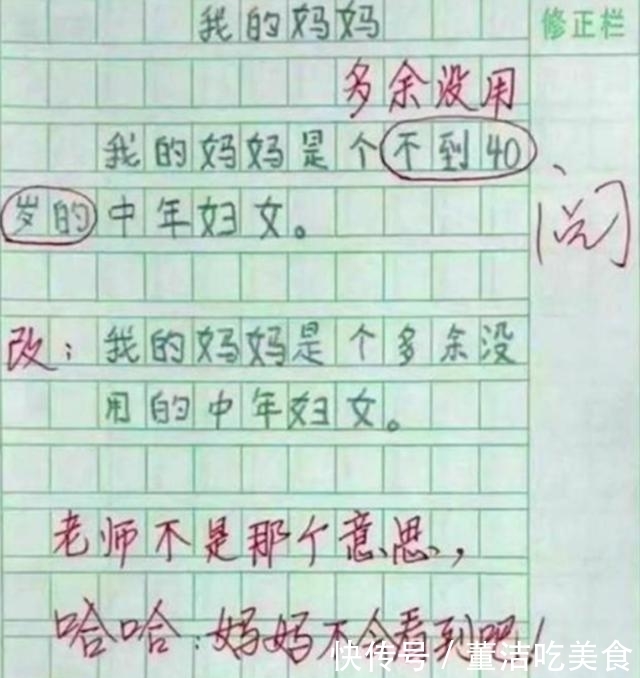 我的妈妈
修正栏
多余没用
我的妈妈是个不到40
岁的中年妇女。
阅
改：我的妈妈是个多余没
用的中年妇女。
老师不是那个意思，
哈哈：妈妈不会看到吧！
快传号/董洁吃美食